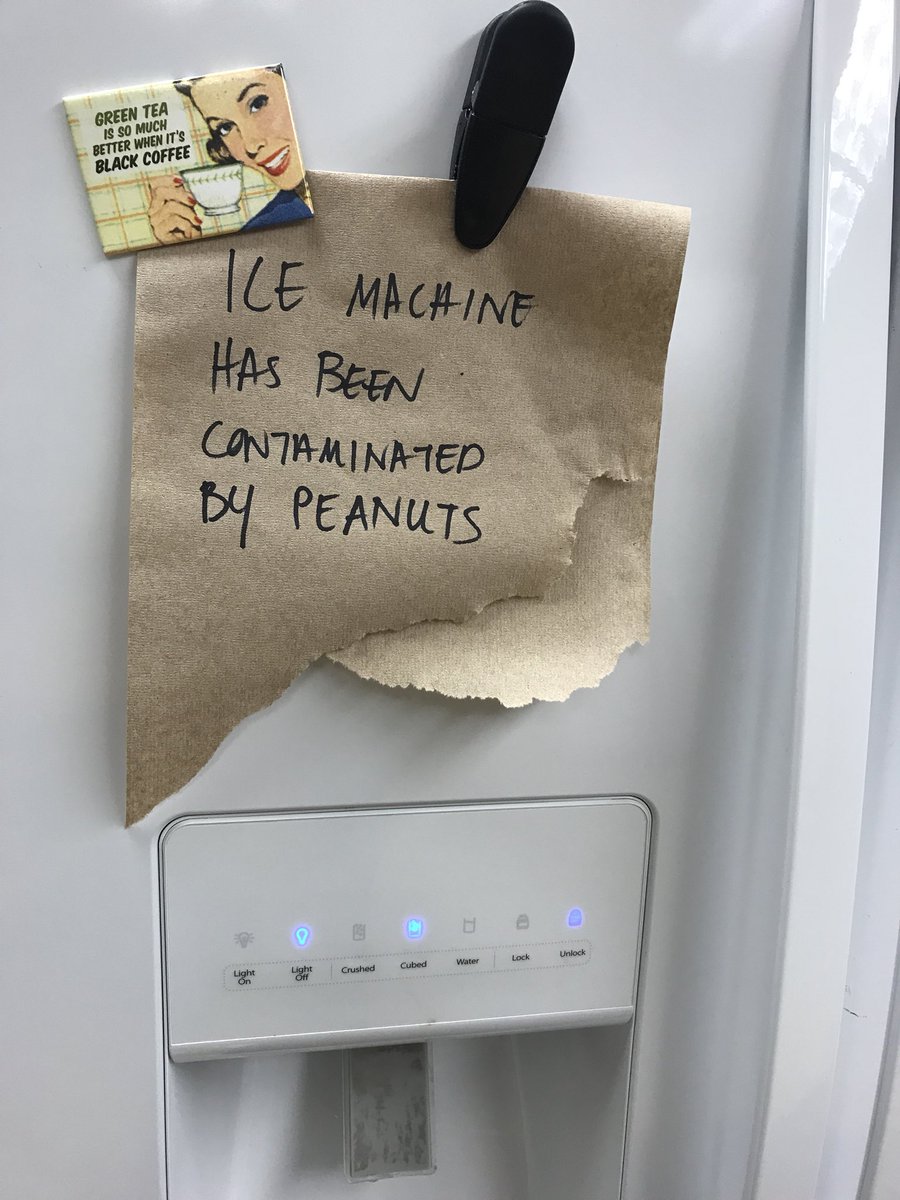 GREEN TEA
IS SO MUCH
BETTER WHEN IT'S
BLACK COFFEE
ICE MACHINE
HAS BEEN
CONTAMINATED
BY PEANUTS
Light On
Light Off
Crushed
Cubed
Water
Lock
Unlock